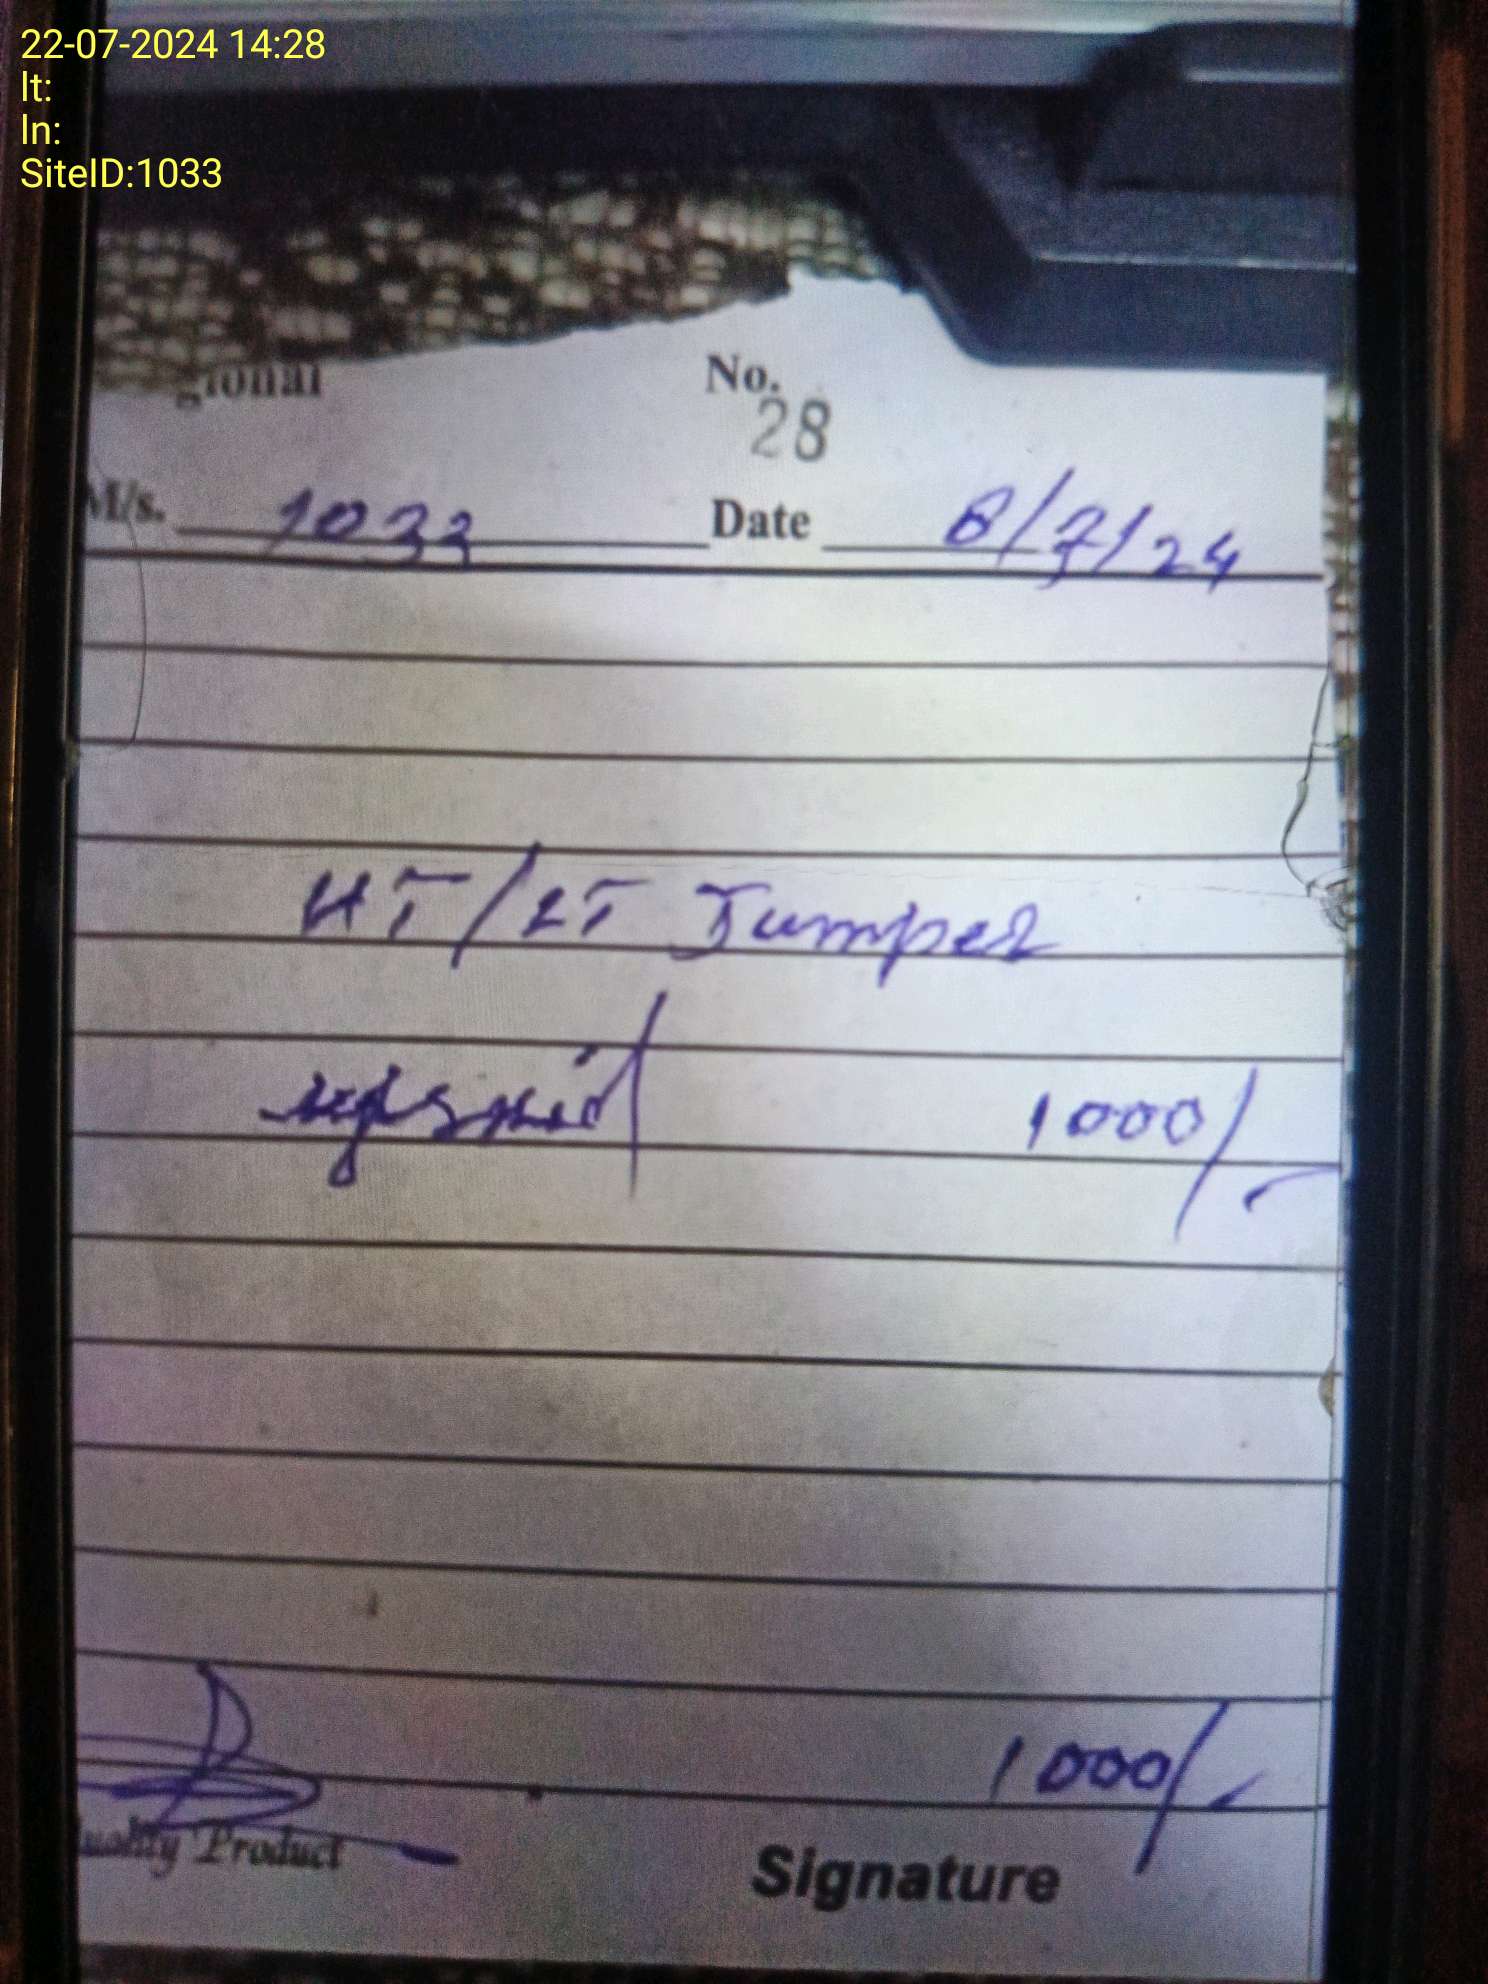 22-07-2024 14:28
lt:
ln:
SiteID:1033
gional
No.
28
M/s. 1033 Date 8/7/24
HT/LT Jumper
1000/-
1000/-
uality Product
Signature